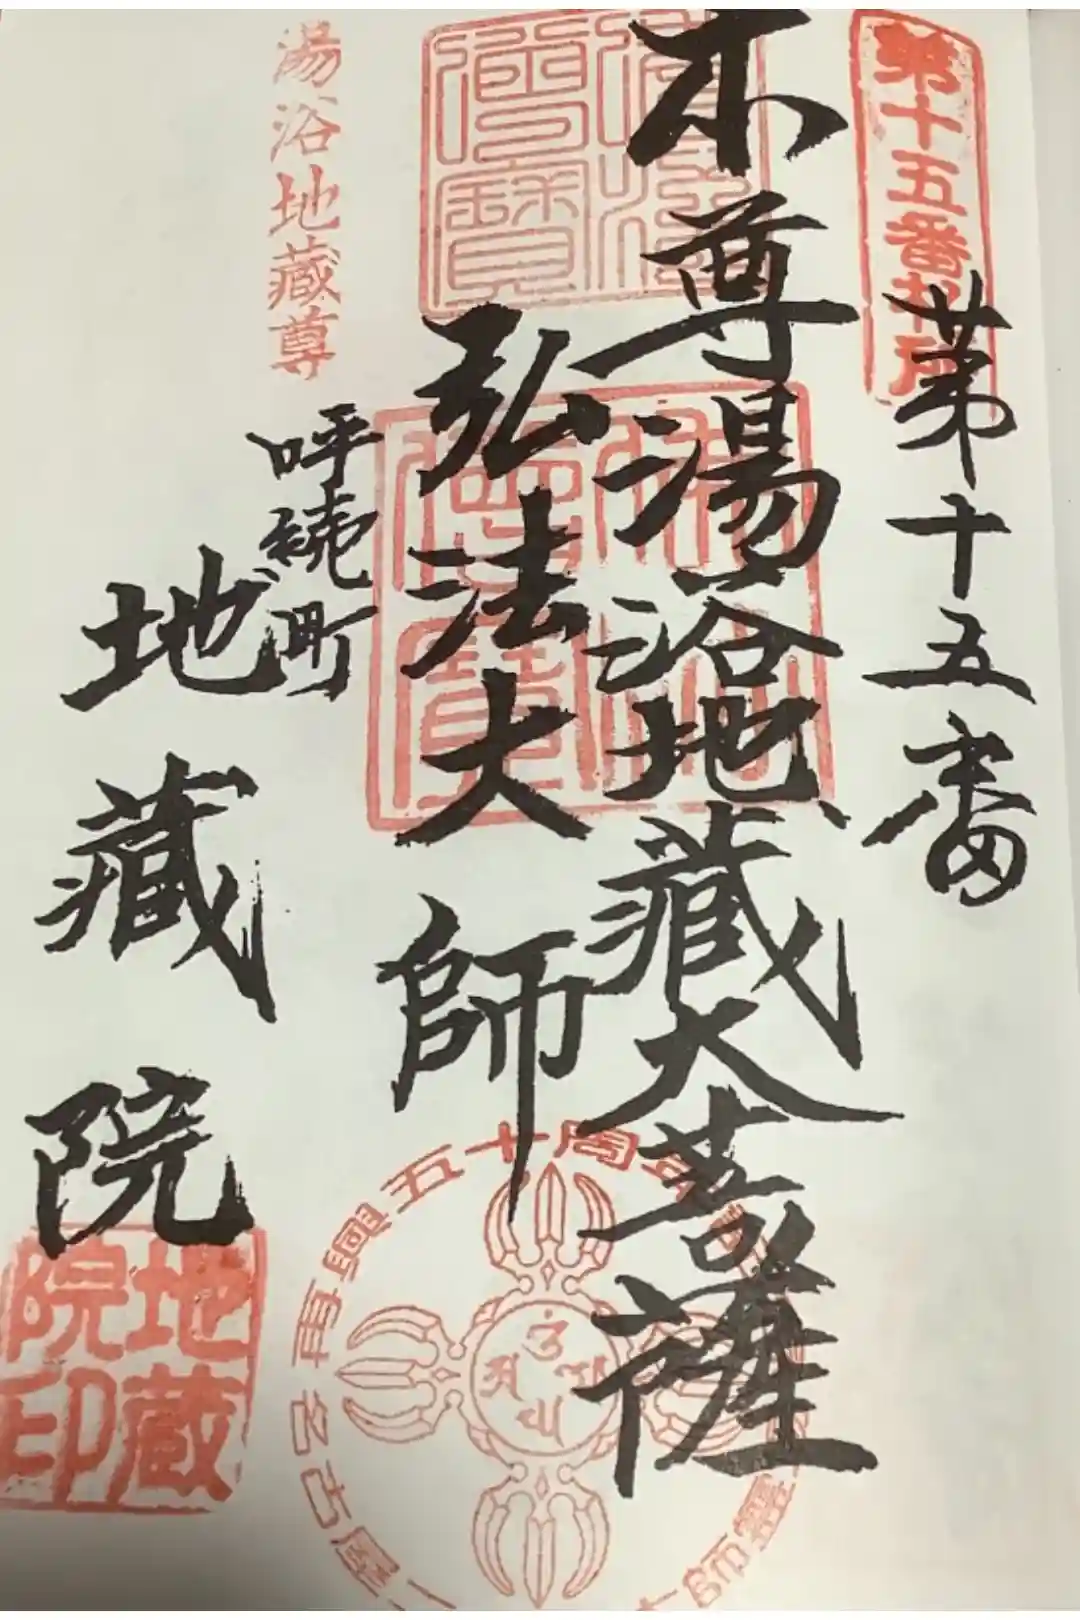 第十五番札所
第十五番
本尊湯浴地蔵大菩薩
弘法大師
湯浴地蔵尊
呼続町
地蔵院
地蔵
院印
佛法
僧寳
再興五十周年